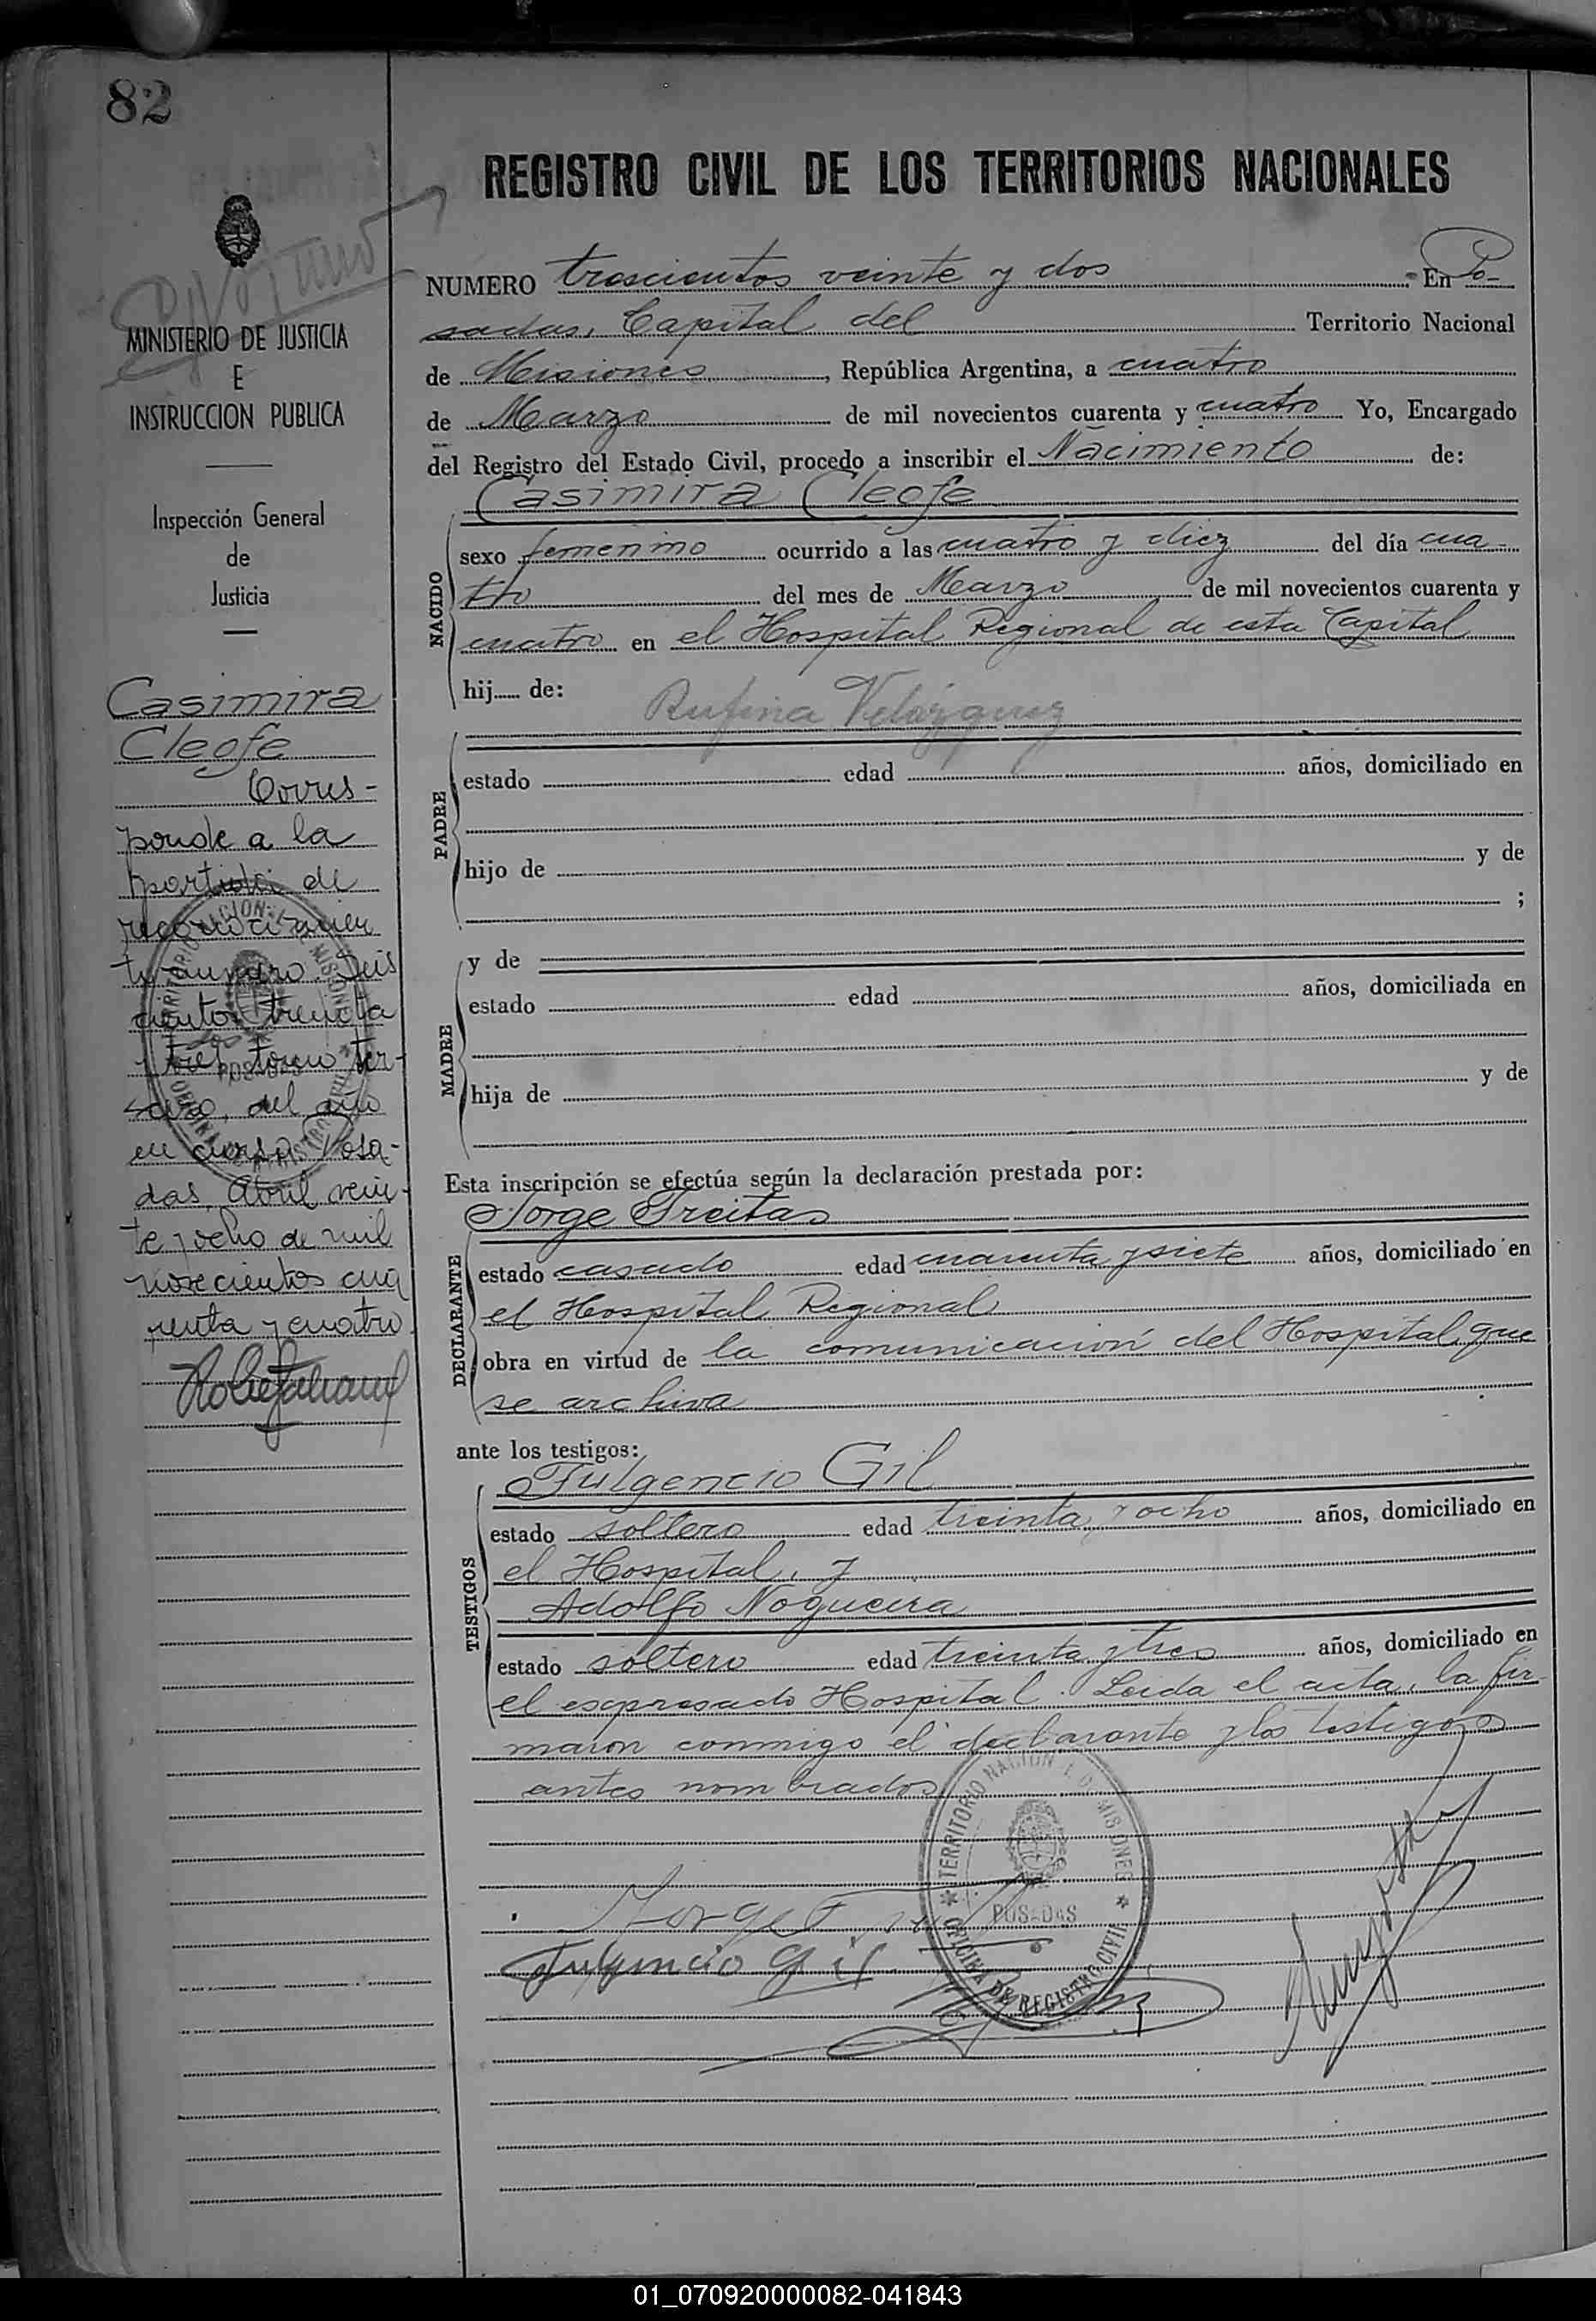 82
REGISTRO CIVIL DE LOS TERRITORIOS NACIONALES
MINISTERIO DE JUSTICIA
E
INSTRUCCION PUBLICA
Inspección General
de
Justicia
Casimira
Cleofe
Corres-
ponde a la
partida de
reconocimien
to número Seis
cientos treinta
y tres tomo ter-
cero, del año
en curso. Posa-
das, Abril vein-
te y ocho de mil
novecientos cua
renta y cuatro
NUMERO trescientos veinte y dos En Po-
sadas, Capital del Territorio Nacional
de Misiones, República Argentina, a cuatro
de Marzo de mil novecientos cuarenta y cuatro Yo, Encargado
del Registro del Estado Civil, procedo a inscribir el Nacimiento de:
Casimira Cleofe
NACIDO
sexo femenino ocurrido a las cuatro y diez del día cua-
tro del mes de Marzo de mil novecientos cuarenta y
cuatro en el Hospital Regional de esta Capital
hij de:
Rufina Velázquez
PADRE
estado edad años, domiciliado en
hijo de y de
;
MADRE
y de
estado edad años, domiciliada en
hija de y de
Esta inscripción se efectúa según la declaración prestada por:
Jorge Freitas
DECLARANTE
estado casado edad cuarenta y siete años, domiciliado en
el Hospital Regional
obra en virtud de la comunicación del Hospital que
se archiva
ante los testigos:
Fulgencio Gil
TESTIGOS
estado soltero edad treinta y ocho años, domiciliado en
el Hospital, y
Adolfo Nogueira
estado soltero edad treinta y tres años, domiciliado en
el expresado Hospital. Leida el acta, la fir-
maron conmigo el declarante y los testigos
antes nombrados.
TERRITORIO NACIONAL DE MISIONES
POSADAS
OFICINA DE REGISTRO CIVIL
Jorge F
Fulgencio Gil
01_070920000082-041843